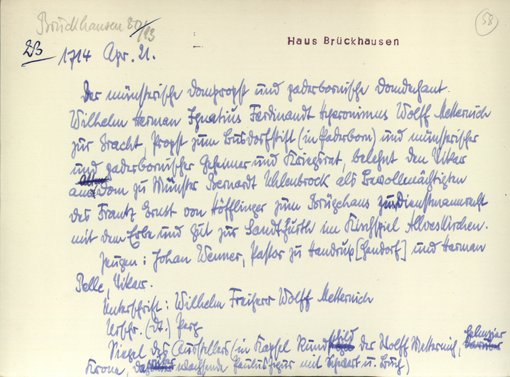 Brückhausen 20/13
58
Haus Brückhausen
23
1714 Apr. 21.
Der münsterische Dompropst und paderbornische Domdechant
Wilhelm Herman Ignatius Ferdinandt Hyeronimus Wolff Metternich
zur Gracht, Propst zum Busdorfstift (in Paderborn) und münsterischer
und paderbornischer Geheimer und Kriegsrat, belehnt den Vikar
am Dom zu Münster Bernardt Uhlenbrock als Bevollmächtigten
des Frantz Ernst von Höfflinger zum Brüghaus zu Dienstmannrecht
mit dem Erbe und Gut zur Sandtfürth im Kirchspiel Alverskirchen.
Zeugen: Johan Wenner, Pastor zu Handrup [Handorf] und Herman
Pelle, Vikar.
Unterschrift: Wilhelm Freiherr Wolff Metternich
Urschr. (dt.) Perg.
Siegel des Ausstellers (in Kapsel Rundschild der Wolff Metternich,
Krone, wachsende Paulusfigur mit Schwert u. Buch)